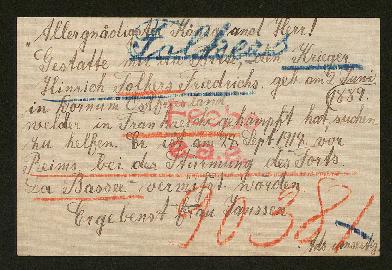 "Allergnädigster König und Herr!
Folkers
Gestatte mir die Bitte, den Krieger
Hinrich Folkers Friedrichs. geb am 2 Juni
1889.
in Dornum Ostfriesland,
welcher in Frankreich gekämpft hat suchen
zu helfen. Er ist am 19 Sept 1914. vor
Reims, bei des Stürmung des Forts.
La Bassee vermisst worden
Ergebenst Frau Janssen.
90381